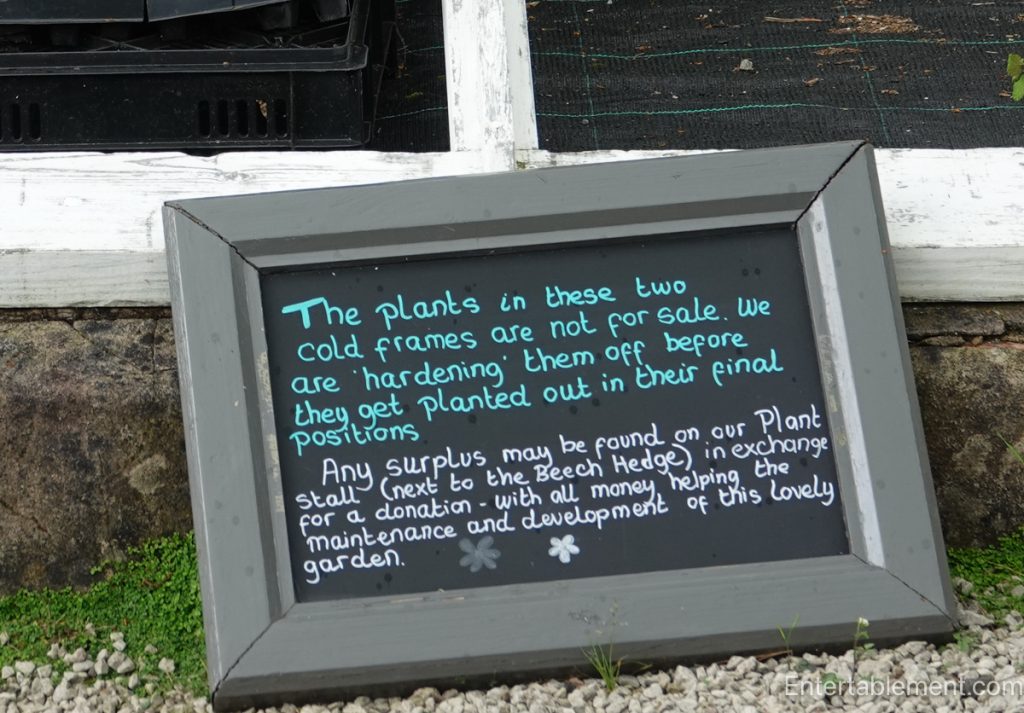 The plants in these two
cold frames are not for sale. We
are 'hardening' them off before
they get planted out in their final
positions
Any surplus may be found on our Plant
stall (next to the Beech Hedge) in exchange
for a donation - with all money helping the
maintenance and development of this lovely
garden.
Entertablement.com